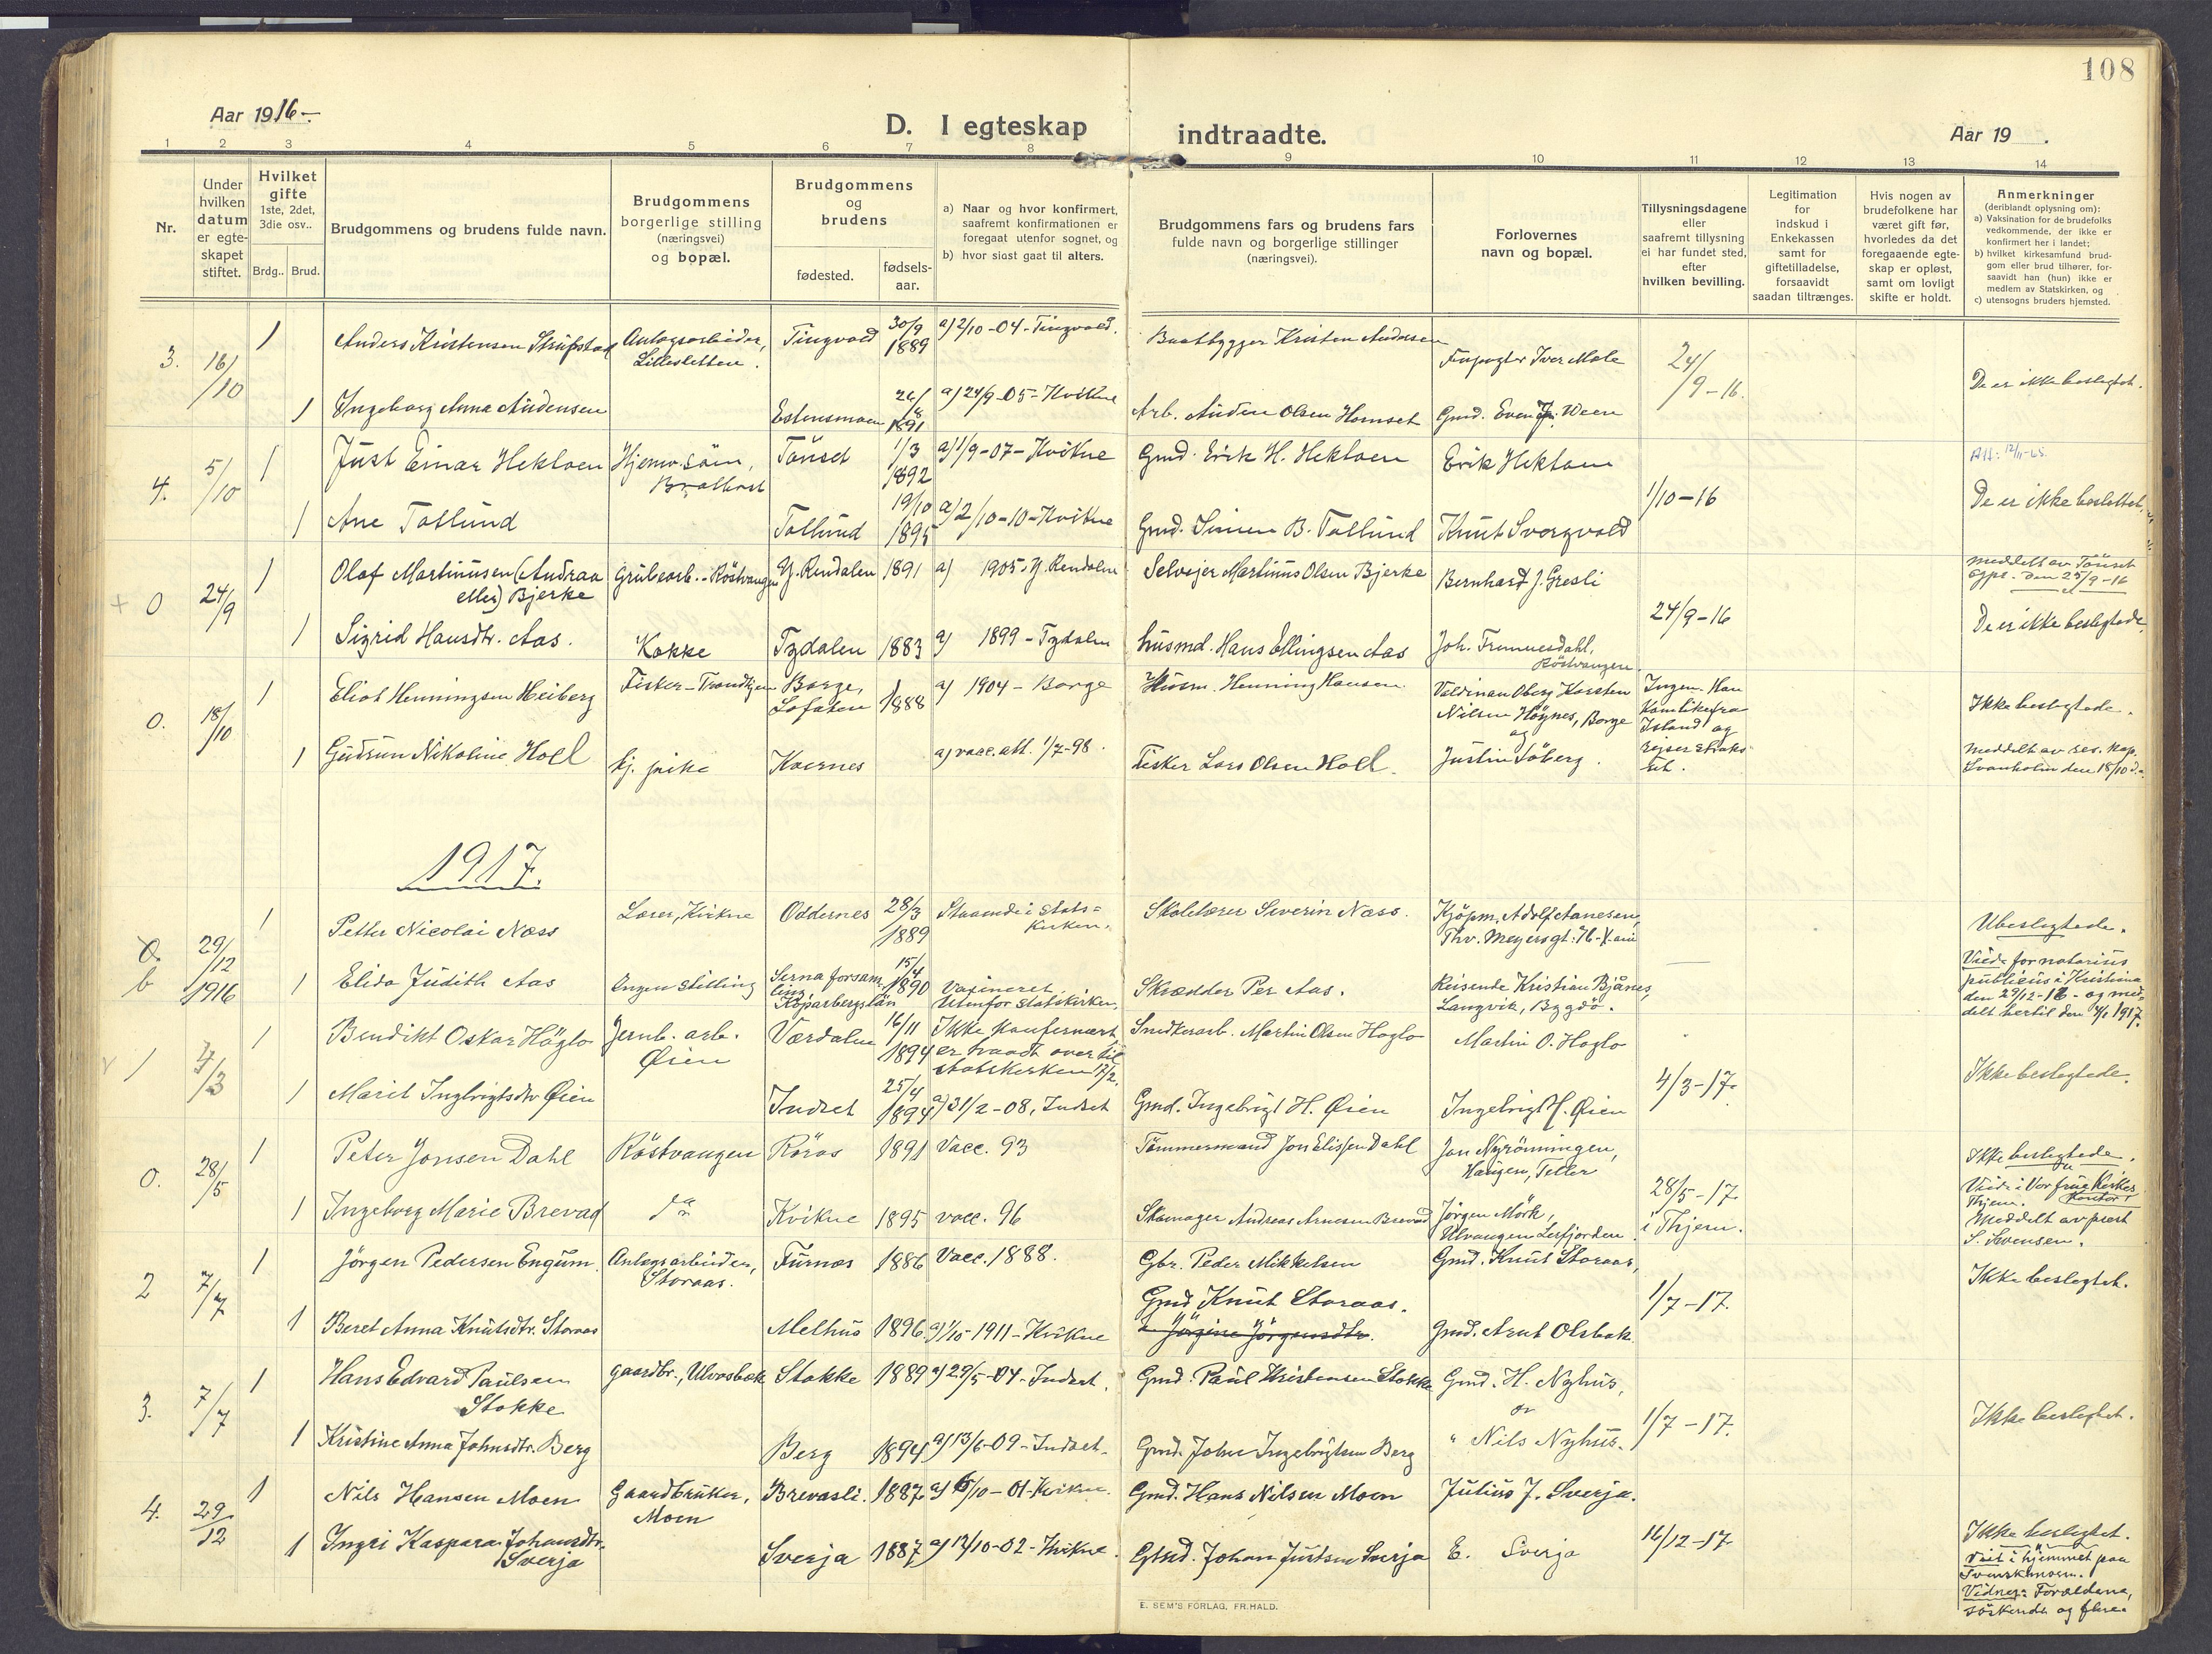 108
Aar 1916.-
D. I egteskap indtraadte.
Aar 19 .
1 2 3 4 5 6 7 8 9 10 11 12 13 14
Nr.
Under hvilken datum er egteskapet stiftet.
Hvilket gifte 1ste, 2det, 3die osv..
Brdg.. Brud.
Brudgommens og brudens fulde navn.
Brudgommens borgerlige stilling (næringsvei) og bopæl.
Brudgommens og brudens
fødested.
fødselsaar.
a) Naar og hvor konfirmert, saafremt konfirmationen er foregaat utenfor sognet, og
b) hvor sidst gaat til alters.
Brudgommens fars og brudens fars fulde navn og borgerlige stillinger (næringsvei).
Forlovernes navn og bopæl.
Tillysningsdagene eller saafremt tillysning ei har fundet sted, efter hvilken bevilling.
Legitimation for indskud i Enkekassen samt for giftetilladelse, forsaavidt saadan tiltrænges.
Hvis nogen av brudefolkene har været gift før, hvorledes da det foregaaende egteskap er opløst, samt om lovligt skifte er holdt.
Anmerkninger
(deriblandt oplysning om):
a) Vaksination for de brudefolks vedkommende, der ikke er konfirmert her i landet;
b) hvilket kirkesamfund brudgom eller brud tilhører, forsaavidt han (hun) ikke er medlem av Statskirken, og
c) utensogns bruders hjemsted.
3. 16/10 1 Anders Kristensen Anlægsarbeider, Lillesletten. Tingvold 30/9 1889 a) 2/10-04-Tingvold. Baatbygger Kristen Andersen Iver Mole 24/9-16. De er ikke beslegtet.
1 Ingeborg Anna Audensen Estensmoen 26/8 1891 a) 24/9-05-Kvikne Arb. Auden Olsen Homset Gmd. Even Ween
4. 5/10 1 Just Einar Hektoen Hjemv. søn, Tönset 1/3 1892 a) 1/9-07-Kvikne Gmd. Erik H. Hektoen Erik Hektoen 1/10-16 De er ikke beslektet.
1 Ane Tallund Tallund 19/10 1895 a) 2/10-10-Kvikne Gmd. Simen B. Tallund Knut Svorgvold
0 24/9 1 Olaf Martinusen (Andraa eller) Bjerke Grubearb.-Röstvangen Y. Rendalen 1891 a) 1905-Y. Rendalen Selvejer Martinus Olsen Bjerke Bernhard J. Gresli 24/9-16 Meddelt av Tönset sgpr. den 25/9-16
1 Sigrid Hansdtr. Aas. Kokke Tydalen 1883 a) 1899-Tydalen Husmd. Hans Ellingsen Aas Joh. Röstvangen. De er ikke beslegtede.
0. 18/10 1 Eliot Henningsen Heiberg Fisker-Trondhjem Borge, Lofoten 1888 a) 1904-Borge Husm. Henning Hansen. Karsten Nilsen Höynes, Borge og Ingen. Han kom ikke fra Island og rejser straks ut. Ikke beslegtede.
1 Gudrun Nikoline Holl tj. pike Kvernes a) vacc. att. 1/7-98. Fisker Lars Olsen Holl. Justin Söberg. Meddelt av res. kap. Svanholm den 18/10 d.a.
1917.
0. b 29/12 1916 1 Petter Nicolai Næss Lærer, Kvikne Oddernes 28/3 1889 Staaende i Statskirken. Skolelærer Severin Næss. Kjöpm. Adolf Aanesen, Thv. Meyersgt. 76 Ubeslegtede.
1 Elida Judith Aas Ingen stilling Serna forsamling, Koparbergslän 15/4 1890 Vaxineret. Utenfor statskirken. Skrædder Per Aas. Reisende Kristian Bjånes, Langvik, Bygdö. Viede for notarius publicus i Kristiania den 29/12-16 - og meddelt hertil den 4/1 1917.
1 4/3 1 Bendikt Oskar Höglo Jernb. arb. Øien Værdalen 16/11 1894 Ikke konfermert er traadt over til statskirken 17/2. Snedkerarb. Martin Olsen Hoglo Martin O. Hoglo 4/3-17. Ikke beslegtede.
1 Marit Ingbrigtsdtr Øien Indset 25/4 1894 Indset Gmd. Ingebrigt H. Øien Ingebrigt H. Øien
0. 28/5 1 Peter Jonsen Dahl Röstvangen Röros 1891 Vacc. 93 Tömmermand Jon Elissen Dahl Jon Nyrönningen, Haugen, Toller 28/5-17 i Thjem. Ikke beslegtede.
1 Ingeborg Marie Brevad do Kvikne 1895 vacc. 96 Skomager Andreas Arnesen Brevad Jörgen Mörk, Viede i Vor frue Kirkes Kontor Thjem. Meddelt av prest S. Svensen.
2 7/7 1 Jörgen Pedersen Engum. Anlægsarbeider, Storaas. Furnes 1886 Vacc. 1888. Gbr. Peder Mikkelsen Gmd. Knut Storaas, 1/7-17. Ikke beslegtet.
1 Beret Anna Knutsdtr. Storaas Melhus 1896 a) 1/10-1911-Kvikne Gmd Knut Storaas. Jörgine Jörgensdtr. Gmd. Arnt Olsbak
3. 7/7 1 Hans Edvard Paulsen Stokke Gaardbr., Ulvosbæk Stokke 1889 a) 29/5-04-Indset. Gmd. Paul Kristensen Stokke Gmd. H. Nyhus, og 1/7-17. Ikke beslegtet.
1 Kristine Anna Johnsdtr. Berg Berg 1894 a) 13/6-09-Indset. Gmd. John Ingebrigtsen Berg " Nils Nyhus.
4. 29/12 1 Nils Hansen Moen Gaardbruker, Moen Brevasli. 1887 a) 6/10-01-Kvikne. Gmd. Hans Nilsen Moen Julius J. Sverja. 16/12-17. Ikke beslegtet.
1 Ingri Kaspara Johansdtr. Sverja Sverja 1887 a) 12/10-02-Kvikne. Gmd. Johan Justsen Sverja E. Sverja Viet i hjemmet paa Svenskmoen. Vidner: Forældrene, söskende og flere
E. SEM'S FORLAG, FR.HALD.